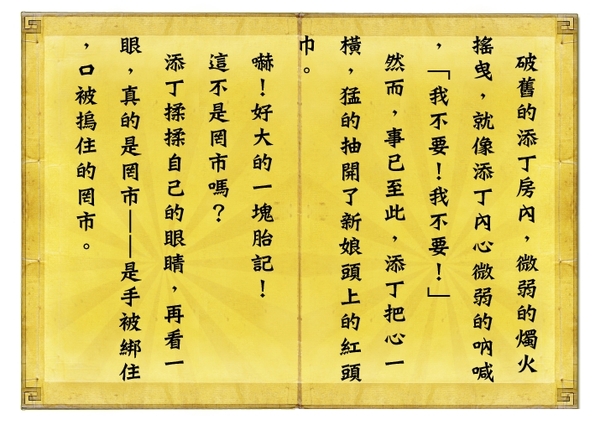 破舊的添丁房內，微弱的燭火
搖曳，就像添丁內心微弱的吶喊
，「我不要！我不要！」
然而，事已至此，添丁把心一
橫，猛的抽開了新娘頭上的紅頭
巾。
嚇！好大的一塊胎記！
這不是罔市嗎？
添丁揉揉自己的眼睛，再看一
眼，真的是罔市——是手被綁住
，口被摀住的罔市。